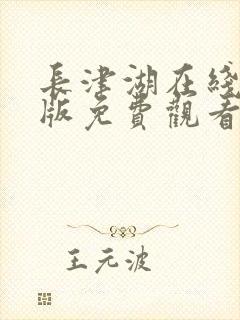 長津湖在綫
版免費觀看
王元波